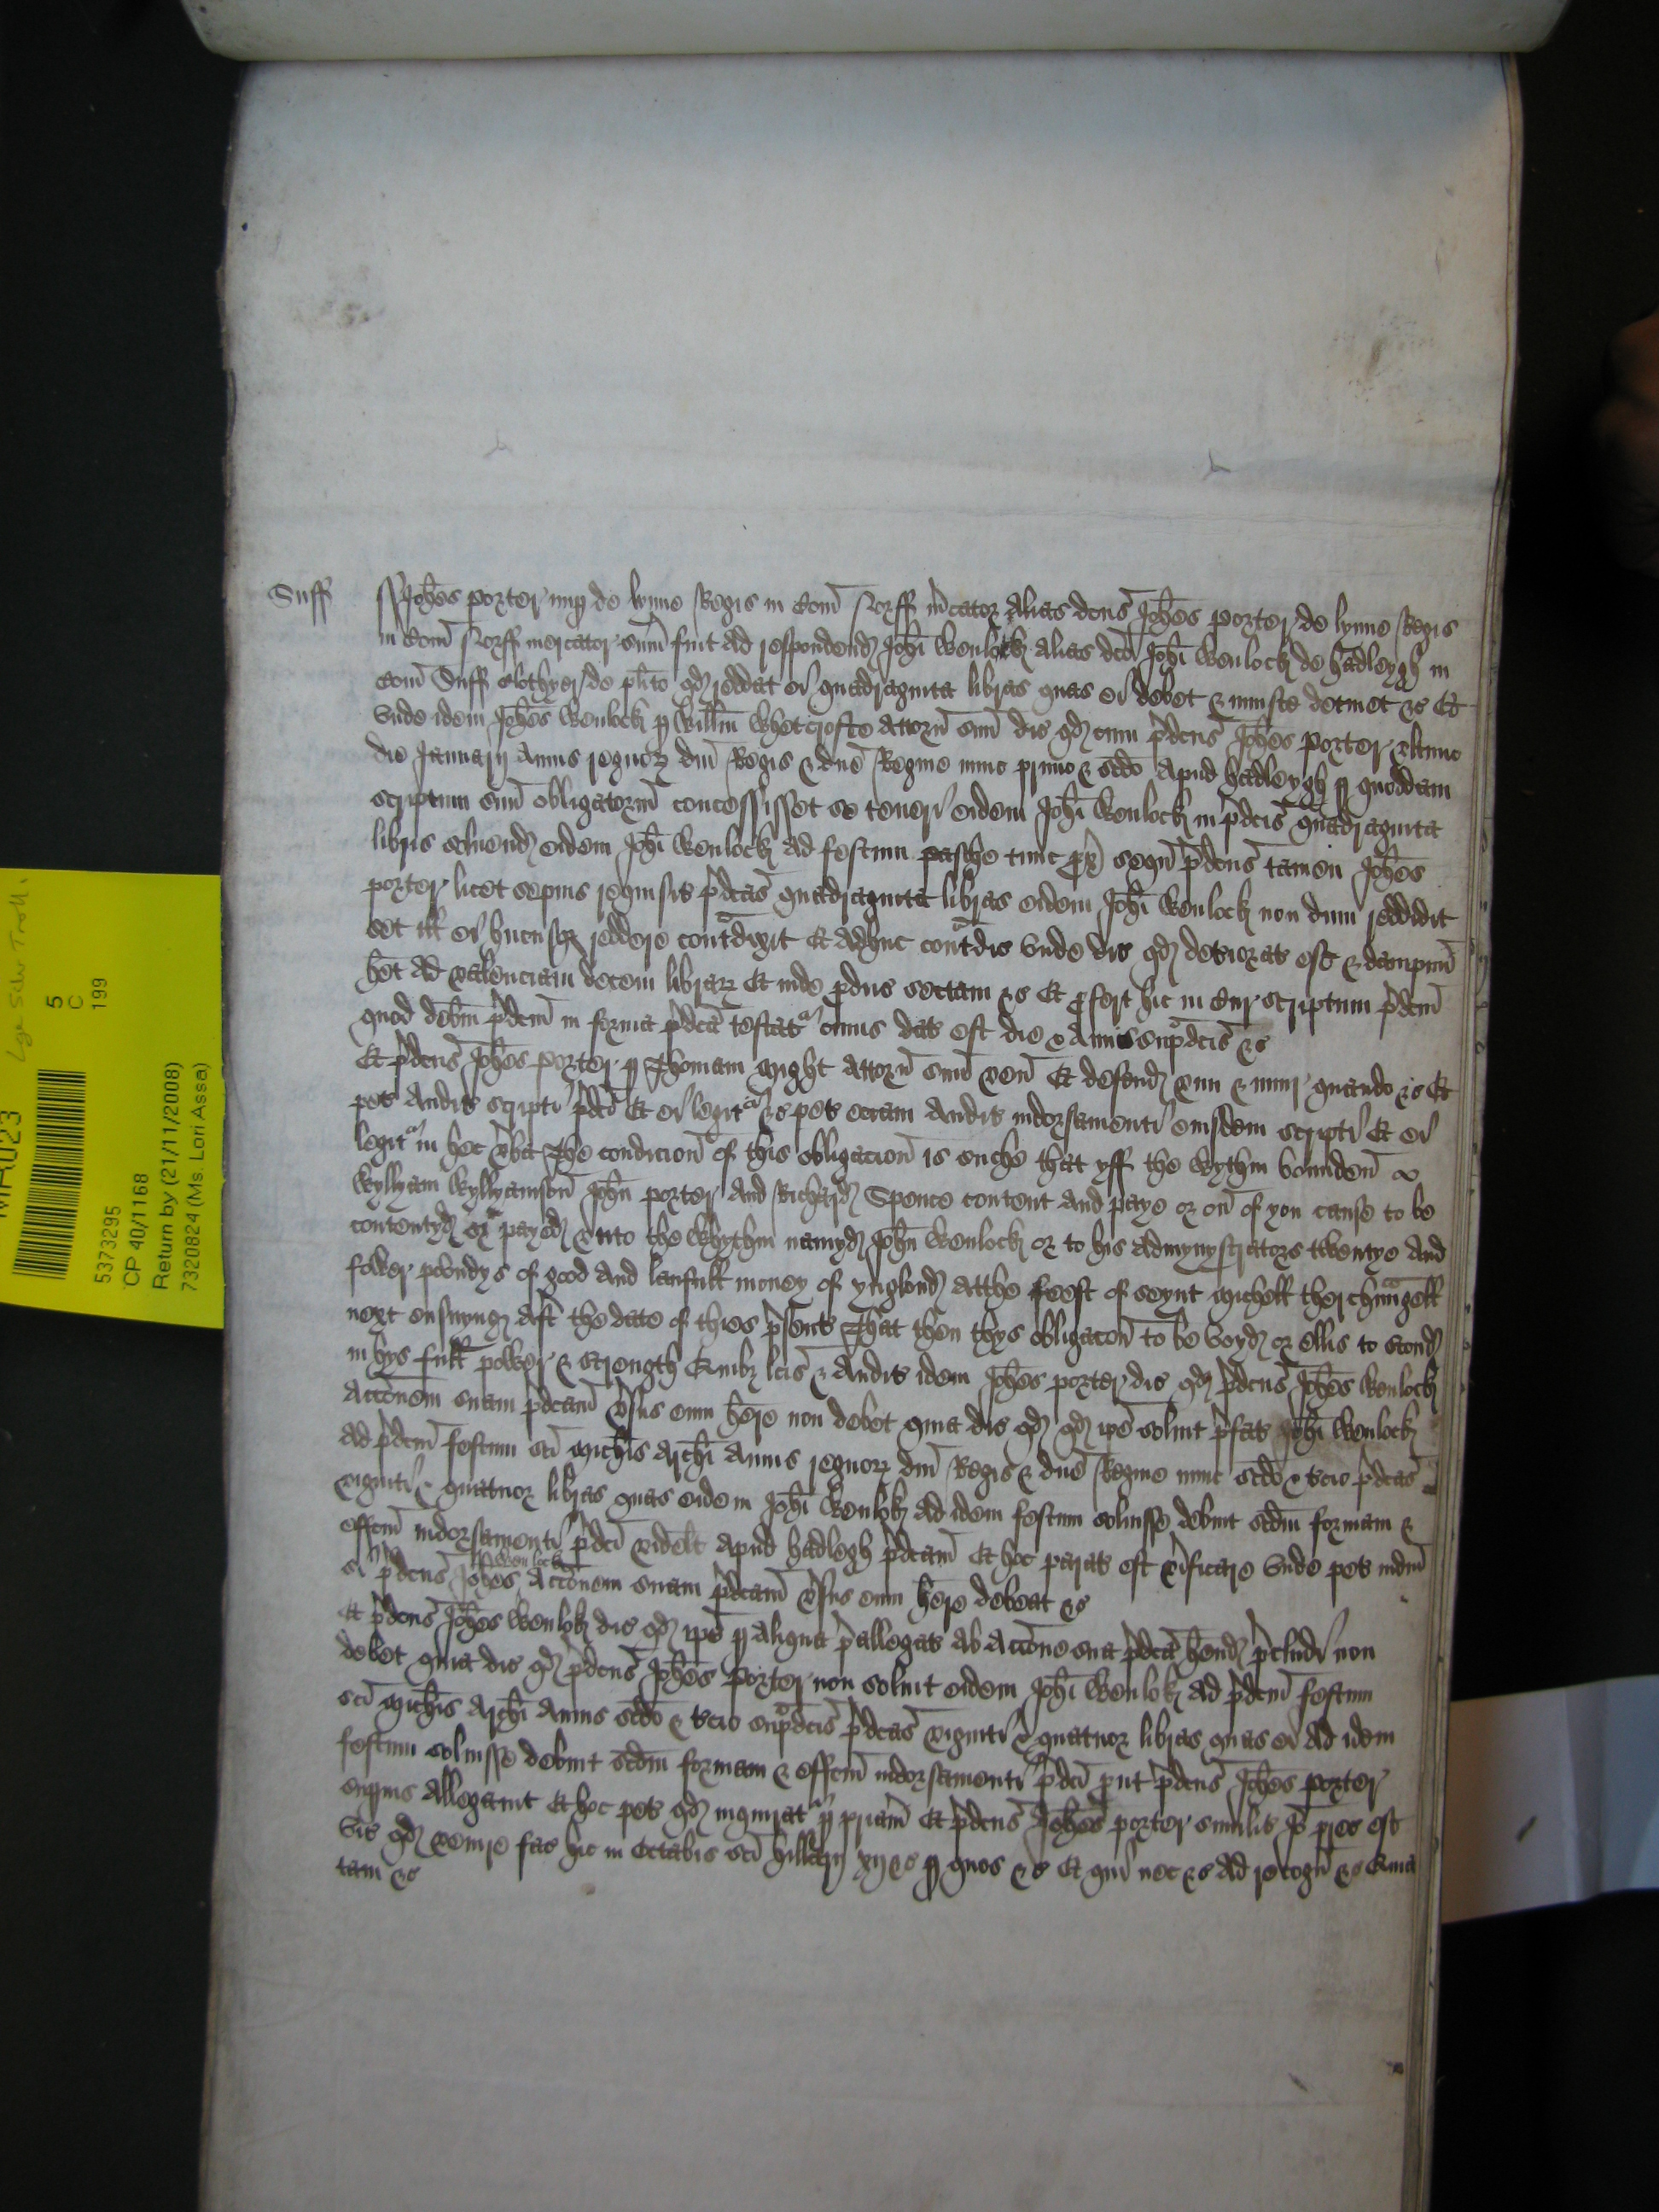 Suff Joh̄es Porter nup de Lynne Regis in Com̄ Norff m̄cator alias dcus Joh̄es Porter de Lynne Regis
in Com̄ Norff mercator sum̄ fuit ad respondend Joh̄i Wenlock alias dc̄o Joh̄i Wenlock de Hadleygh in
Com̄ Suff Clothyer de pl̄ito qd reddat ei quadraginta libras quas ei debet & iniuste detinet &c Et
unde idem Joh̄es Wenlock p Will̄m Whetcrofte attorn̄ suū dic qd cum p̄dcus Joh̄es Porter ultimo
die Januarij Annis regnor dn̄i Regis & dn̄e Regine nunc primo & scdo apud Hadleygh p quoddam
scriptum suū obligatoriū concessisset se teneri eidem Joh̄i Wenlock in p̄dcis quadraginta
libris solvend eidem Joh̄i Wenlock ad festum Pasche tunc px̄ sequn̄ p̄dcus tamen Joh̄es
Porter licet sepius requisit p̄dcas quadraginta libras eidem Joh̄i Wenlock non dum reddidit
set ill ei hucusq reddere contradixit Et adhuc contradic unde dic qd deteriorat est & dampnū
h̄et ad valenciam decem librar Et inde pduc sectam &c Et pfert hic in Cur scriptum p̄dcm̄
quod debm̄ p̄dcm̄ in forma p̄dca testatr cuius dat est die & Annis sup̄dcis &c
Et p̄dcus Joh̄es Porter p Thomam Myght attorn̄ suū ven̄ Et defend vim & iniur quando &c Et
pet audit scripti p̄dci Et ei legitr &c pet eciam audit indorsamenti eiusdem scripti Et ei
legitr in hec v̄ba The condicion̄ of this obligacion̄ is suche that yff the wythin bounden̄
Wyllyam Wyllyamson̄ Joh̄n Porter and Richard Spence content and paye or on̄ of yon cause to be
contentyd or payed unto the whythin namyd Joh̄n Wenlock or to his admynystrators twentye and
fower powndys of good and laufull money of Ynglond atthe feest of Seynt Michell tharchaungell
next ensuyng aft̄ the date of thies p̄sents That then thys obligacon̄ to be voyd or ellis to stond
in hys full power & strength Quibz lc̄is & audit idem Joh̄es Porter dic qd p̄dcus Joh̄es Wenlock
acc̄onem suam p̄dcam v̄sus eum h̄ere non debet quia dic qd qd ip̄e solvit p̄fat Joh̄i Wenlock
ad p̄dcm̄ festum sc̄i Mich̄is Arch̄i Annis regnor dn̄i Regis & dn̄e Regine nunc scdo & t̄cio p̄dcas
viginti & quatuor libras quas eidem Joh̄i Wenlok ad idem festum solvisse debuit scdm̄ formam &
effcm̄ indorsamenti p̄dci videlt apud Hadlegh p̄dcam Et hoc parat est v̄ificare unde pet iudm̄
si p̄dcus Joh̄es Wenlock acc̄onem suam p̄dcam v̄sus eum h̄ere debeat &c
Et p̄dcus Joh̄es Wenlok dic qd ip̄e p aliqua p̄allegat ab acc̄one sua p̄dca h̄end p̄cludi non
debet quia dic qd p̄dcus Joh̄es Porter non solvit eidem Joh̄i Wenlok ad p̄dcm̄ festum
sc̄i Mich̄is Arch̄i Annis scdo & t̄cio sup̄dcis p̄dcas viginti & quatuor libras quas ei ad idem
festum solvisse debuit scdm̄ formam & effcm̄ indorsamenti p̄dci put p̄dcus Joh̄es Porter
sup̄ius allegavit Et hoc pet qd inquiratr p pr̄iam Et p̄dcus Joh̄es Porter similit̄ Io p̄c est
vic qd venire fac hic in Octabis sc̄i Hillarij xij &c p quos &c Et qui nec &c ad recogn̄ &c Quia
tam &c
5
C
199
5373295
CP 40/1168
Return by (21/11/2008)
7320824 (Ms. Lori Assa)